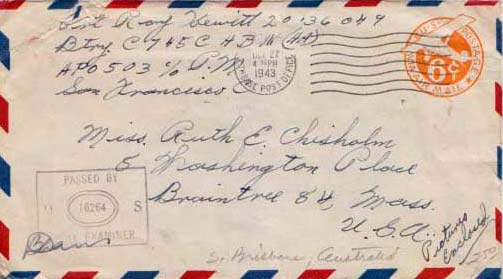 Sgt Roy Hewitt 20136049
Btry C 745 C A B N (AA)
APO 503 c/o P.M.
San Francisco C
1943
POST OFFICE
U.S. POSTAGE
6¢
AIR MAIL
Miss. Ruth E. Chisholm
5 Washington Place
Braintree 84, Mass.
U.S.A.
PASSED BY
U 16264 S
EXAMINER
S. Brisbane, Australia
Pictures
Enclosed